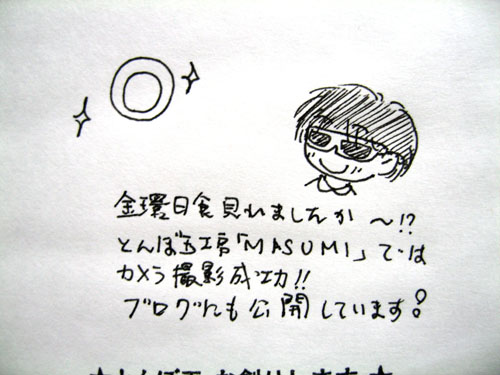 金環日食見れましたか〜!?
とんぼ玉工房「MASUMI」では
カメラ撮影成功!!
ブログにも公開しています!